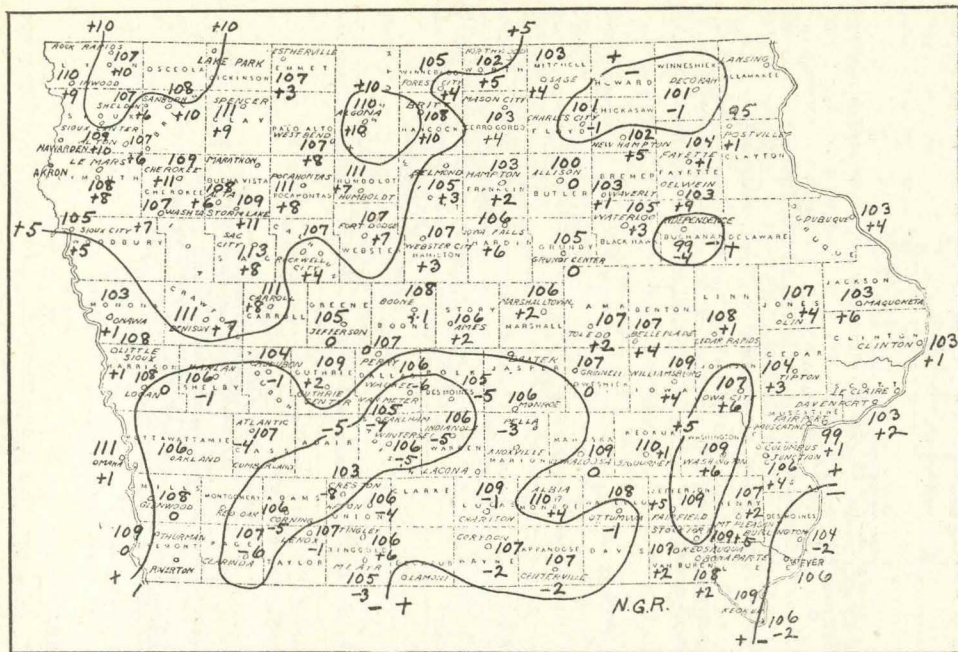 +10 +10 +5
ROCK RAPIDS 107 +10
110 INWOOD +9
OSCEOLA
LAKE PARK
DICKINSON
ESTHERVILLE
EMMET 107 +3
105 WINNEBAGO
FOREST CITY +4
NORTHWOOD
102 WORTH +5
103 MITCHELL
OSAGE +4
+ -
HOWARD
WINNESHIEK
DECORAH 101 -1
LANSING
ALLAMAKEE
107 SHELDON +6
108 SANBORN +10
SPENCER
111 CLAY +9
PALO ALTO
WEST BEND 107 +8
+10
110 ALGONA +10
BRITT 108
HANCOCK +10
MASON CITY
103 CERRO GORDO +4
101 CHARLES CITY
FLOYD -1
CHICKASAW
102 NEW HAMPTON +5
104 FAYETTE +1
FAYETTE
95 POSTVILLE +1
CLAYTON
SIOUX CENTER
ALTON 107 +6
HAWARDEN +10
AKRON
LE MARS
108 +8
109 CHEROKEE +11
CHEROKEE
MARATHON
BUENA VISTA
108 ALTA +6
STORM LAKE +11
POCAHONTAS
111 POCAHONTAS +8
111 HUMBOLDT +7
HUMBOLDT
BELMOND
105 +3
103 HAMPTON
FRANKLIN +2
100 ALLISON
0 BUTLER
BREMER
103 WAVERLY +1
OELWEIN
103 +9
+5
105 SIOUX CITY +5
WOODBURY
107 WASHTA +7
SAC CITY
113 +8
107 ROCKWELL CITY +4
107 FORT DODGE +7
WEBSTER
107 WEBSTER CITY
HAMILTON +3
106 IOWA FALLS
HARDIN +6
105 GRUNDY
GRUNDY CENTER 0
WATERLOO 105 +3
BLACK HAWK
INDEPENDENCE
BUCHANAN
99 -4
- +
DELAWARE
DUBUQUE
103 +4
103 MONONA
ONAWA +1
CRAWFORD
111 DENISON +7
111 CARROLL +8
CARROLL
GREENE
105 JEFFERSON 0
BOONE 108 +1
BOONE
STORY
106 AMES +2
106 MARSHALLTOWN
+2 MARSHALL
TAMA
TOLEDO 0
BENTON
107 BELLE PLAINE +4
LINN
108 +1
CEDAR RAPIDS
JONES 107
OLIN +4
JACKSON
103 MAQUOKETA +6
CLINTON
CLINTON 103 +1
108 LITTLE SIOUX
HARRISON +1
108 LOGAN 0
HARLAN
106 SHELBY -1
104 AUDUBON -1
109 GUTHRIE +2
GUTHRIE CENTER
107 PERRY
DALLAS
106 WAUKEE -6
VAN METER
POLK
DES MOINES 105 -5
JASPER
BAXTER
107 GRINNELL
POWESHIEK 0
109 WILLIAMSBURG
IOWA +4
JOHNSON
107 IOWA CITY +6
CEDAR
104 TIPTON +3
SCOTT
LE CLAIRE
DAVENPORT
103 +2
111 OMAHA +1
POTTAWATTAMIE
106 OAKLAND
ATLANTIC
107 -4
CASS
CUMBERLAND
ADAIR
-5
105 EARLHAM
WINTERSET
106 -5
106 INDIANOLA -5
WARREN
LACONA
106 MONROE
PELLA -3
KNOXVILLE
MARION
MAHASKA
109 OSKALOOSA 0
KEOKUK
110 +1
SIGOURNEY
+5
WASHINGTON
109 WASHINGTON +6
MUSCATINE
FAIRPORT
MUSCATINE
99 +1
COLUMBUS JUNCTION
106 +4
+ -
MILLS
108 GLENWOOD 0
MONTGOMERY
RED OAK
ADAMS
106 CORNING -5
103 CRESTON -8
AFTON
UNION
106 -4
CLARKE
109 LUCAS -1
CHARITON
ALBIA
110 +4
MONROE
108 OTTUMWA -1
JEFFERSON
109 FAIRFIELD +5
STOCKPORT
107 HENRY
MT PLEASANT +5
DES MOINES
BURLINGTON 104 -2
109 0
THURMAN
FREMONT
RIVERTON
+
107 PAGE -6
CLARINDA
TAYLOR
LENOX -1
TINGLEY
106 +6
RINGGOLD
MT AYR
105 -3
- +
LAMONI
DECATUR
CORYDON
107 WAYNE -2
APPANOOSE
107 CENTERVILLE -2
DAVIS
109 KEOSAUQUA
VAN BUREN +2
109 BONAPARTE
108 +2
LEE
WEVER
106
109 KEOKUK
106 -2
+ -
N.G.R.